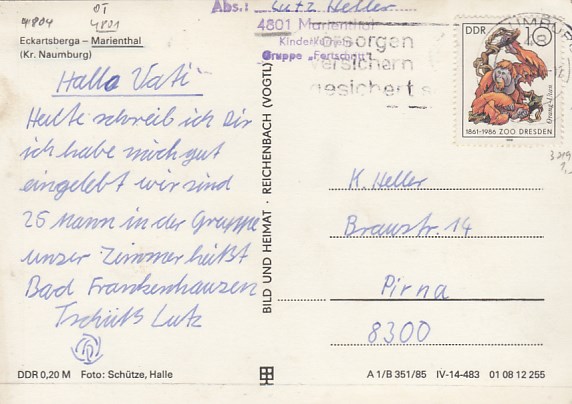 4804
OT
4801
Eckartsberga – Marienthal
(Kr. Naumburg)
Hallo Vati
Heute schreib ich Dir
ich habe mich gut
eingelebt wir sind
26 Mann in der Gruppe
unser Zimmer heißt
Bad Frankenhausen
Tschüß Lutz
DDR 0,20 M Foto: Schütze, Halle
BILD UND HEIMAT · REICHENBACH (VOGTL)
Abs.: Lutz Heller
4801 Marienthal
Gruppe
orsorgen
ersichern
gesichert s
DDR 10
Orang-Utan
1861-1986 ZOO DRESDEN
K. Heller
Braustr. 14
Pirna
8300
A 1/B 351/85 IV-14-483 01 08 12 255